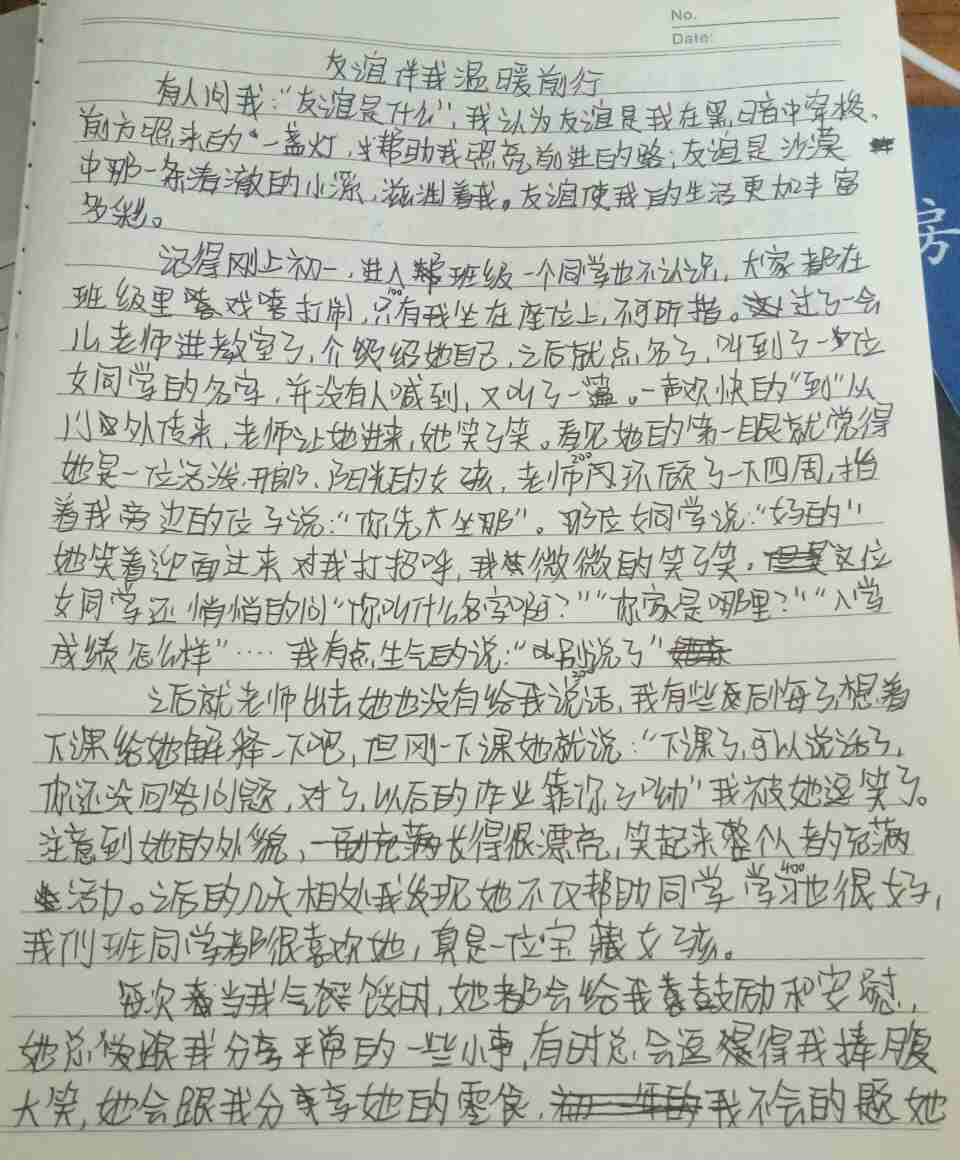 No.
Date:
友谊伴我温暖前行
有人问我:“友谊是什么”,我认为友谊是我在黑暗中穿梭、
前方照来的一盏灯,帮助我照亮前进的路;友谊是沙漠
中那一条清澈的小溪,滋润着我。友谊使我的生活更加丰富
多彩。
记得刚上初一,进入班级一个同学也不认识,大家都在
班级里嘻戏打闹,只有我坐在座位上,不可所措。过了一会
100
儿老师进教室了,介绍她自己,之后就点名了,叫到了一位
女同学的名字,并没有人喊到,又叫了一遍。一声欢快的“到”从
门外传来,老师让她进来,她笑了笑。看见她的第一眼就觉得
她是一位活泼、开朗、阳光的女孩,老师环顾了一下四周,指
200
着我旁边的位子说:“你先坐那”。那位女同学说:“好的”
她笑着迎面过来对我打招呼,我微微的笑了笑。这位
女同学还悄悄的问“你叫什么名字啊?”“你家是哪里?”“入学
成绩怎么样”……我有点生气的说:“别说了”
300
之后就老师出去她也没有给我说话,我有些后悔了,想着
下课给她解释一下吧,但刚一下课她就说:“下课了,可以说话了,
你还没回答问题,对了,以后的作业靠你了呦”我被她逗笑了。
注意到她的外貌,长得很漂亮,笑起来整个人都充满
活力。之后的几天相处我发现她不仅帮助同学 学习也很好,
400
我们班同学都很喜欢她,真是一位宝藏女孩。
每次当我气馁时,她都会给我鼓励和安慰,
她总爱跟我分享平常的一些小事,有时总会逗得我捧腹
大笑,她会跟我分享她的零食,我不会的题她
房